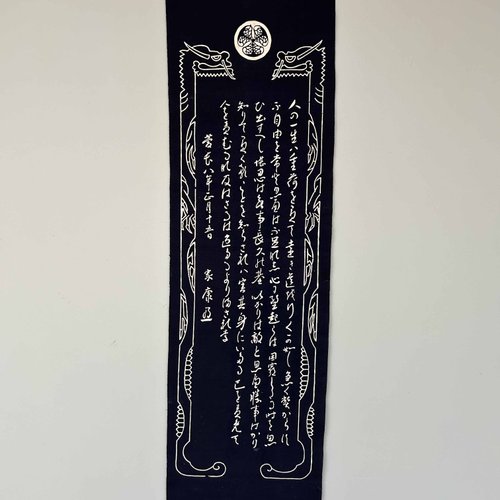 人の一生ハ重荷を負て遠き道を行くかごとし急くべからす
不自由を常と思へば不足なし心に望起らは困窮したる時を思
ひ出すべし堪忍は無事長久の基いかりは敵と思へ勝事はかり
知りて負くることを知らされハ害其身にいたる己を責めて
人を責むるな及はさるは過たるよりまされり
慶長八年正月十五日 家康